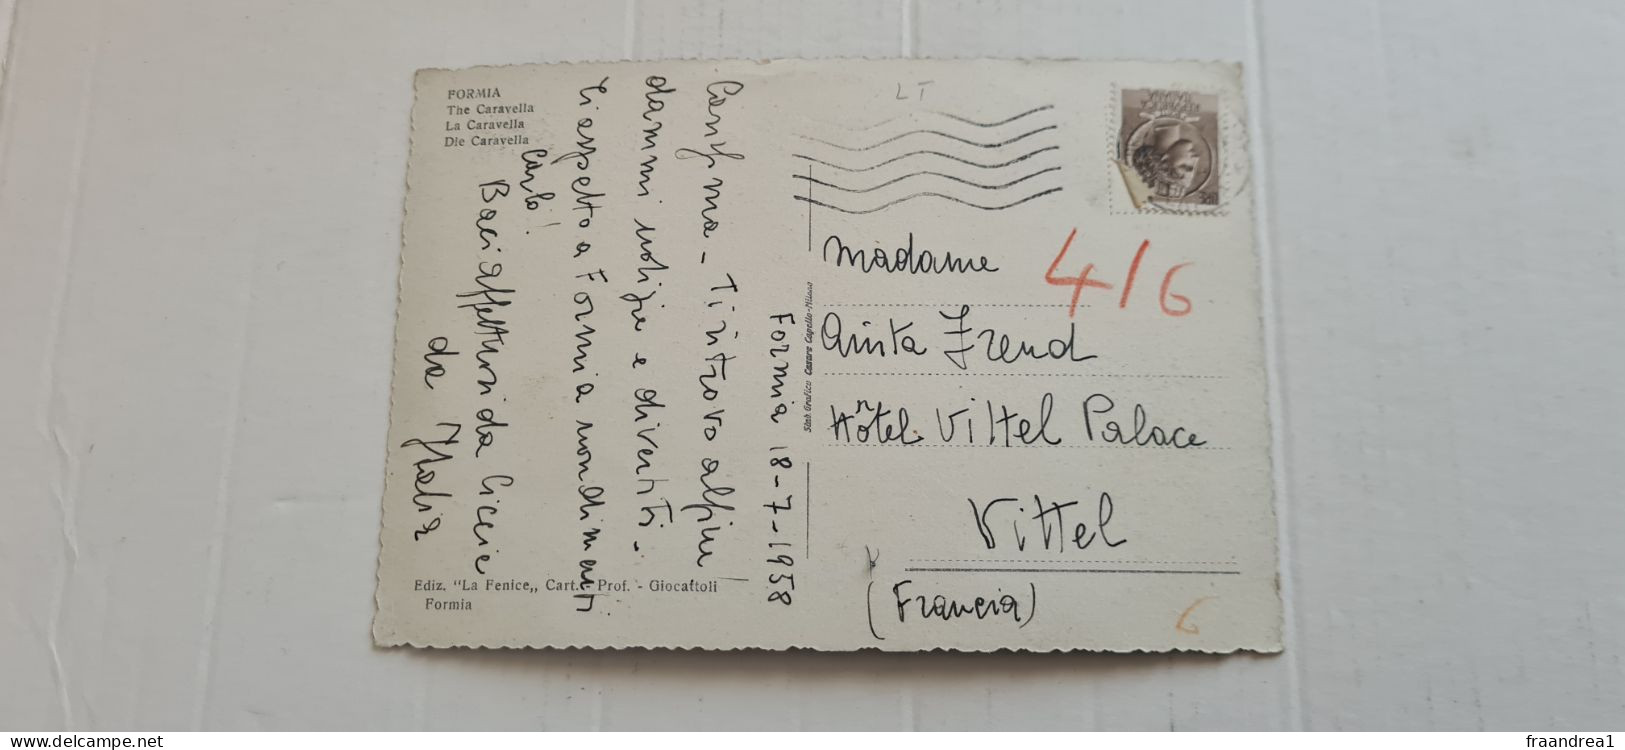 FORMIA
The Caravella
La Caravella
Die Caravella
LT
Formia 18-7-1958
Ti ritrovo al più
dammi notizie e divertiti.
Ti aspetto a Formia non dimenti
Carlo!
Baci affettuosi da Ciccie
da
Madame
4/6
Anita Freud
Hôtel Vittel Palace
Vittel
(Francia)
6
Stab. Grafico Cesare Capello-Milano
Ediz. "La Fenice„ Cart. Prof. - Giocattoli
Formia
https://www.delcampe.net
fraandrea1